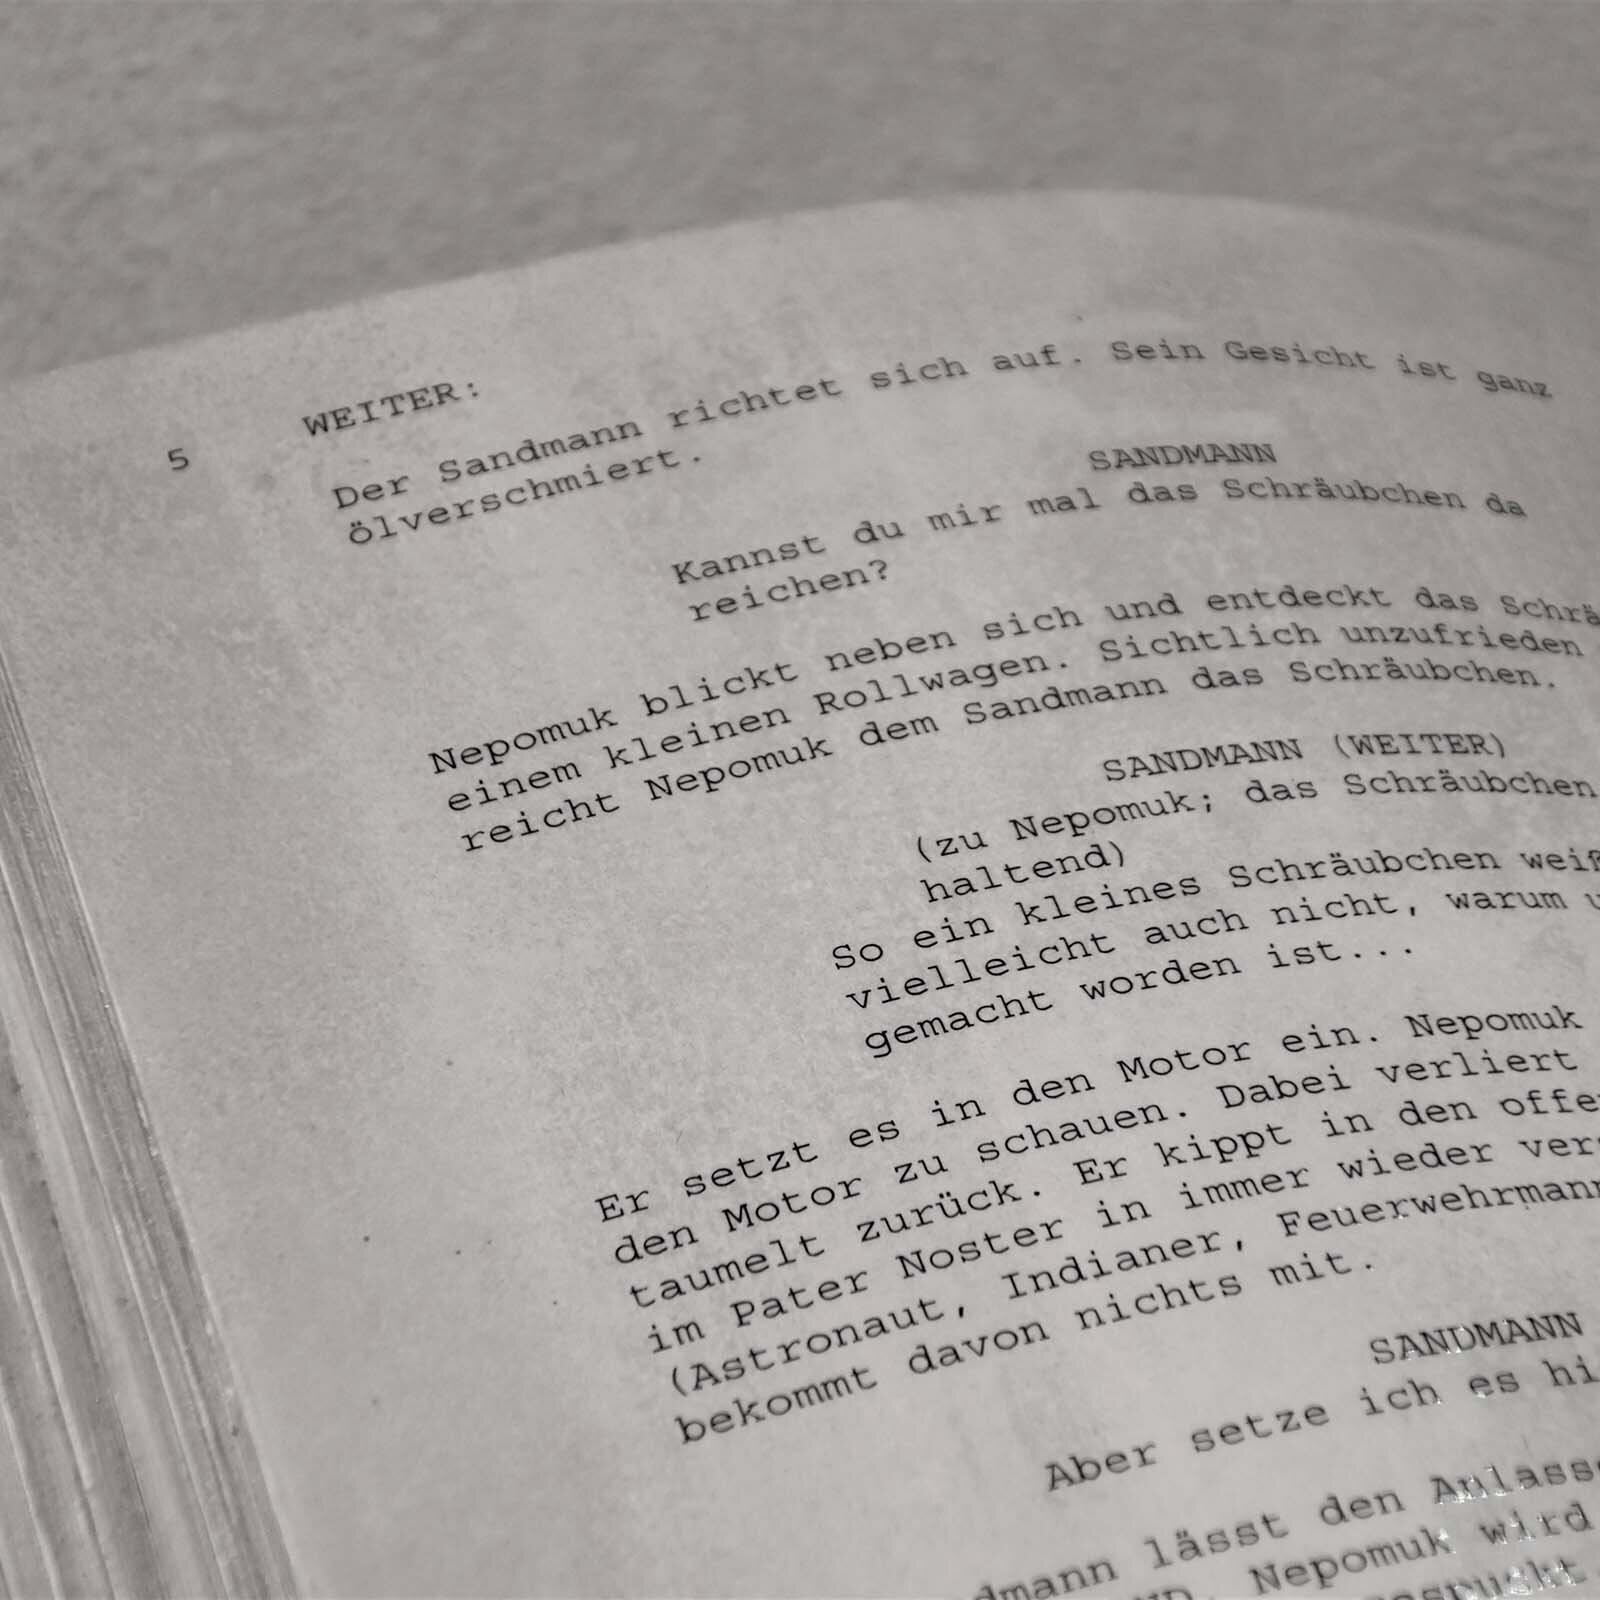 WEITER:
5
Der Sandmann richtet sich auf. Sein Gesicht ist ganz
ölverschmiert.
SANDMANN
Kannst du mir mal das Schräubchen da
reichen?
Nepomuk blickt neben sich und entdeckt das
einem kleinen Rollwagen. Sichtlich unzufrieden
reicht Nepomuk dem Sandmann das Schräubchen.
SANDMANN (WEITER)
(zu Nepomuk; das Schräubchen
haltend)
So ein kleines Schräubchen
vielleicht auch nicht, warum
gemacht worden ist...
Er setzt es in den Motor ein. Nepomuk
den Motor zu schauen. Dabei verliert
taumelt zurück. Er kippt in den
im Pater Noster in immer wieder
(Astronaut, Indianer, Feuerwehrmann
bekommt davon nichts mit.
SANDMANN
Aber setze ich es
lässt den
Nepomuk wird